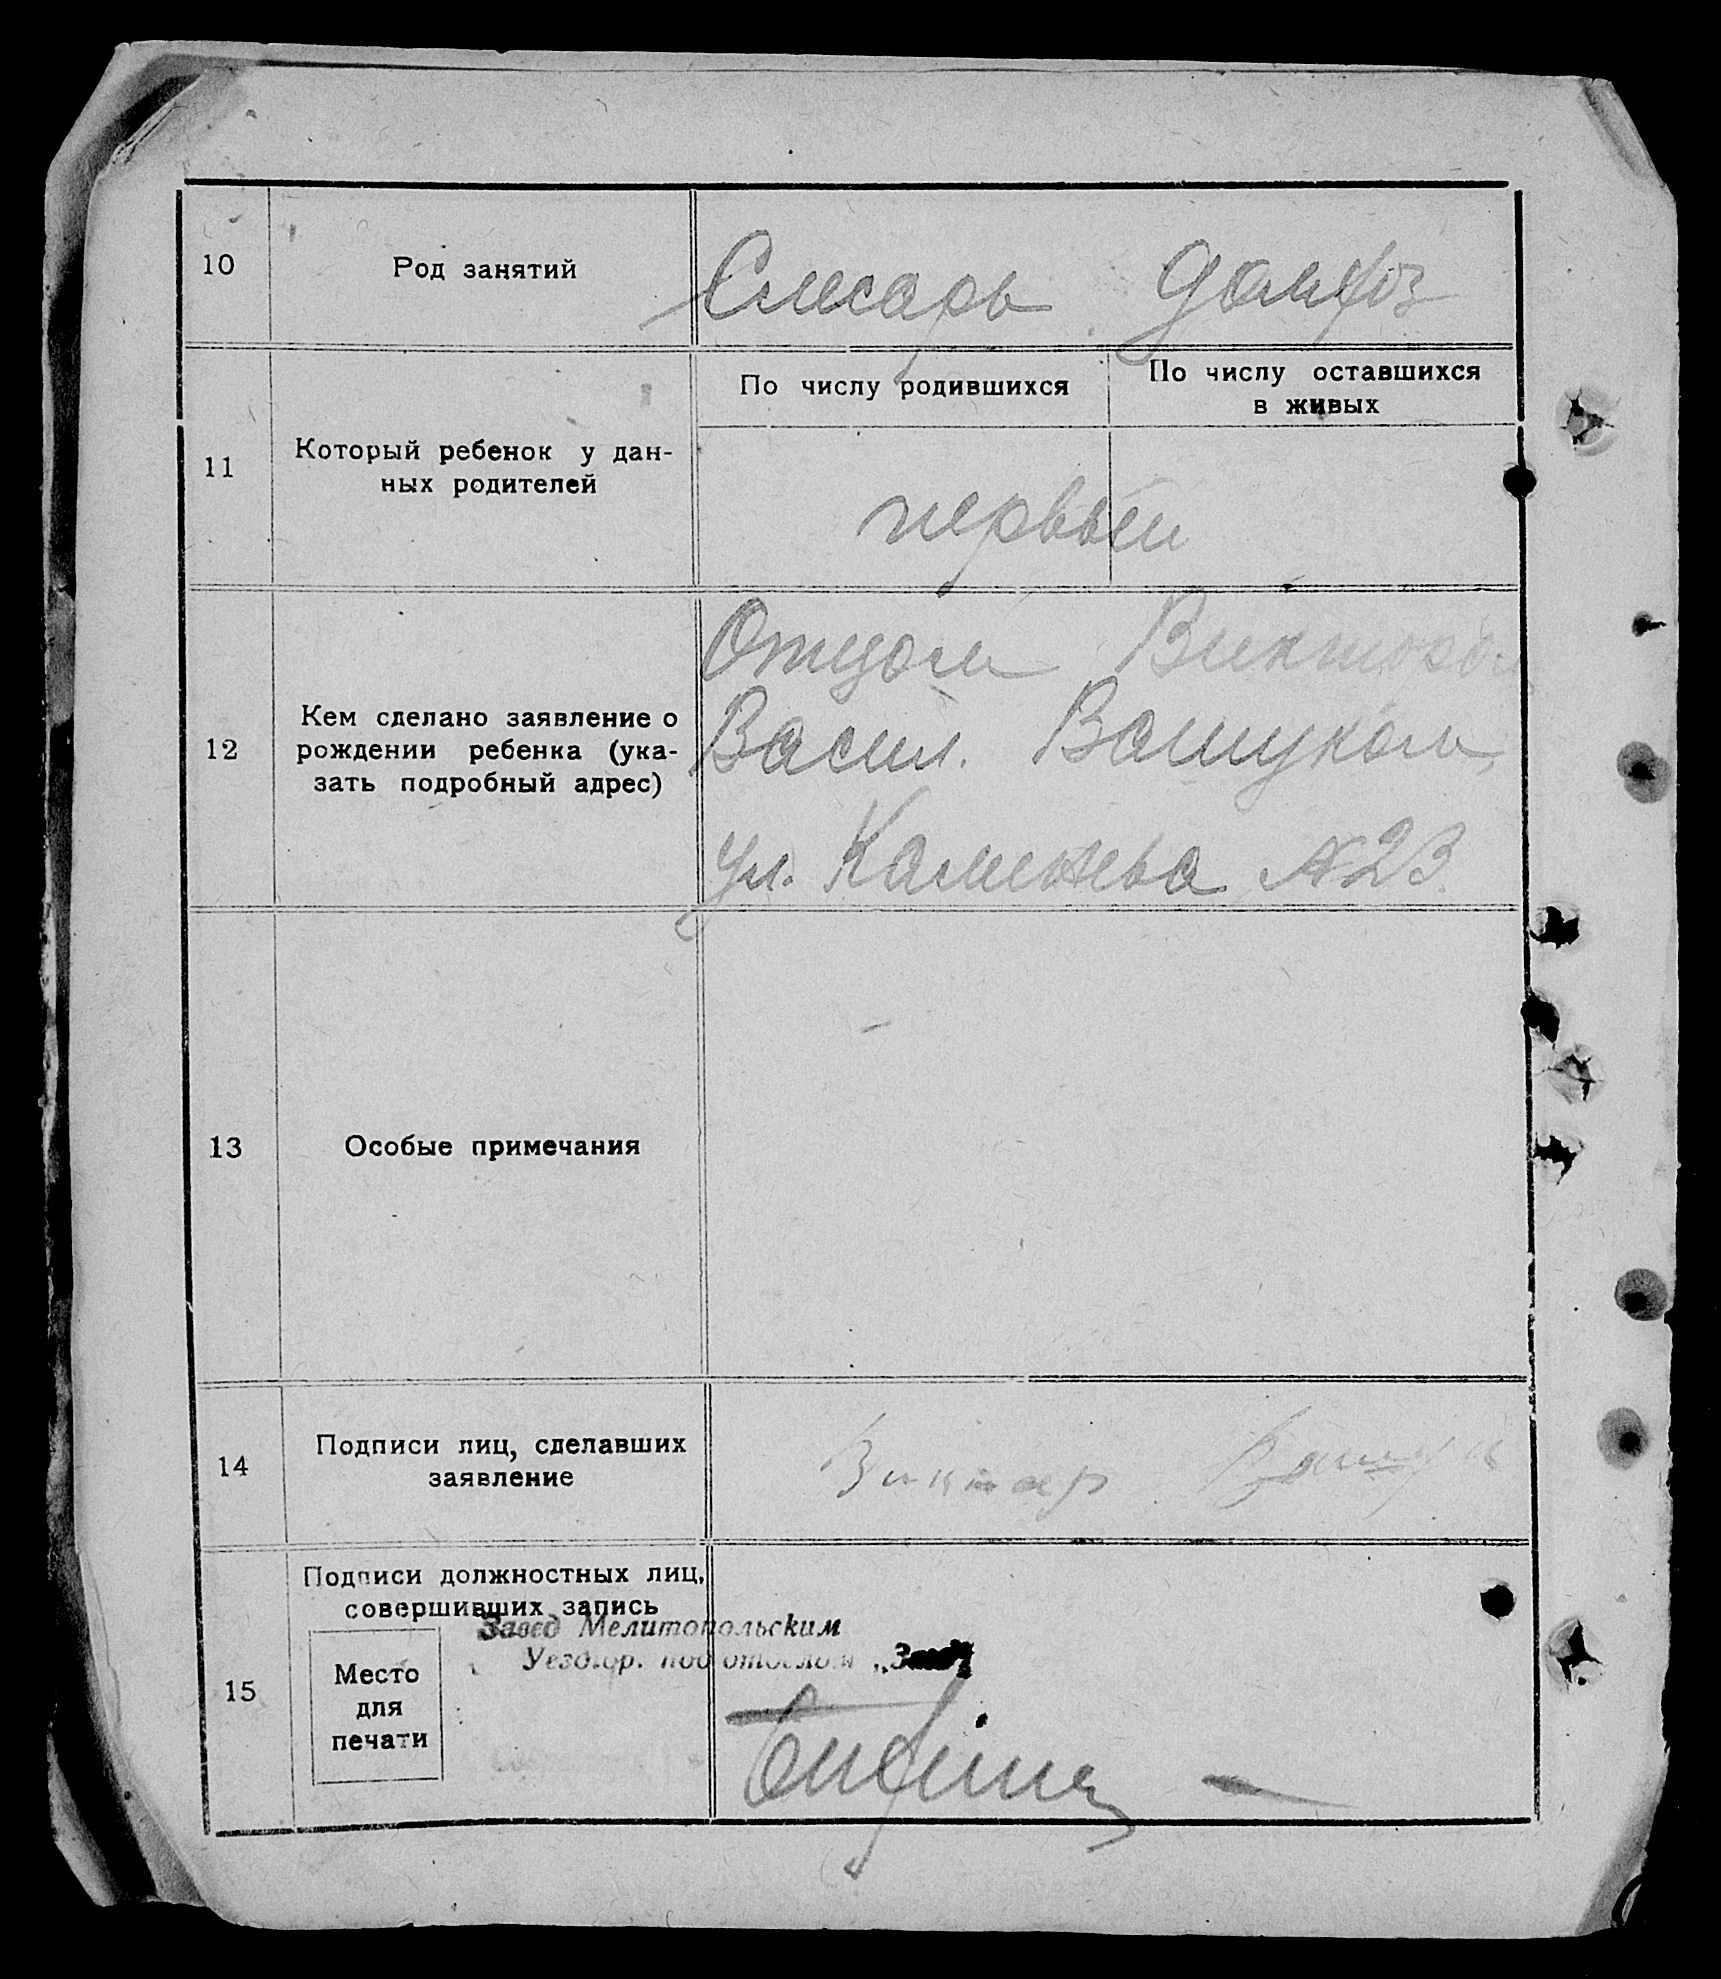 10
Род занятий
Слесарь домхоз
11
Который ребенок у дан-
ных родителей
По числу родившихся
По числу оставшихся
в живых
первый
12
Кем сделано заявление о
рождении ребенка (ука-
зать подробный адрес)
Отцом Виктором
Васил. Ващуком
ул. Каменева №23.
13
Особые примечания
14
Подписи лиц, сделавших
заявление
Виктор Ващук
15
Подписи должностных лиц,
совершивших запись
Завед Мелитопольским
Уезд.гор. под отделом
Место
для
печати